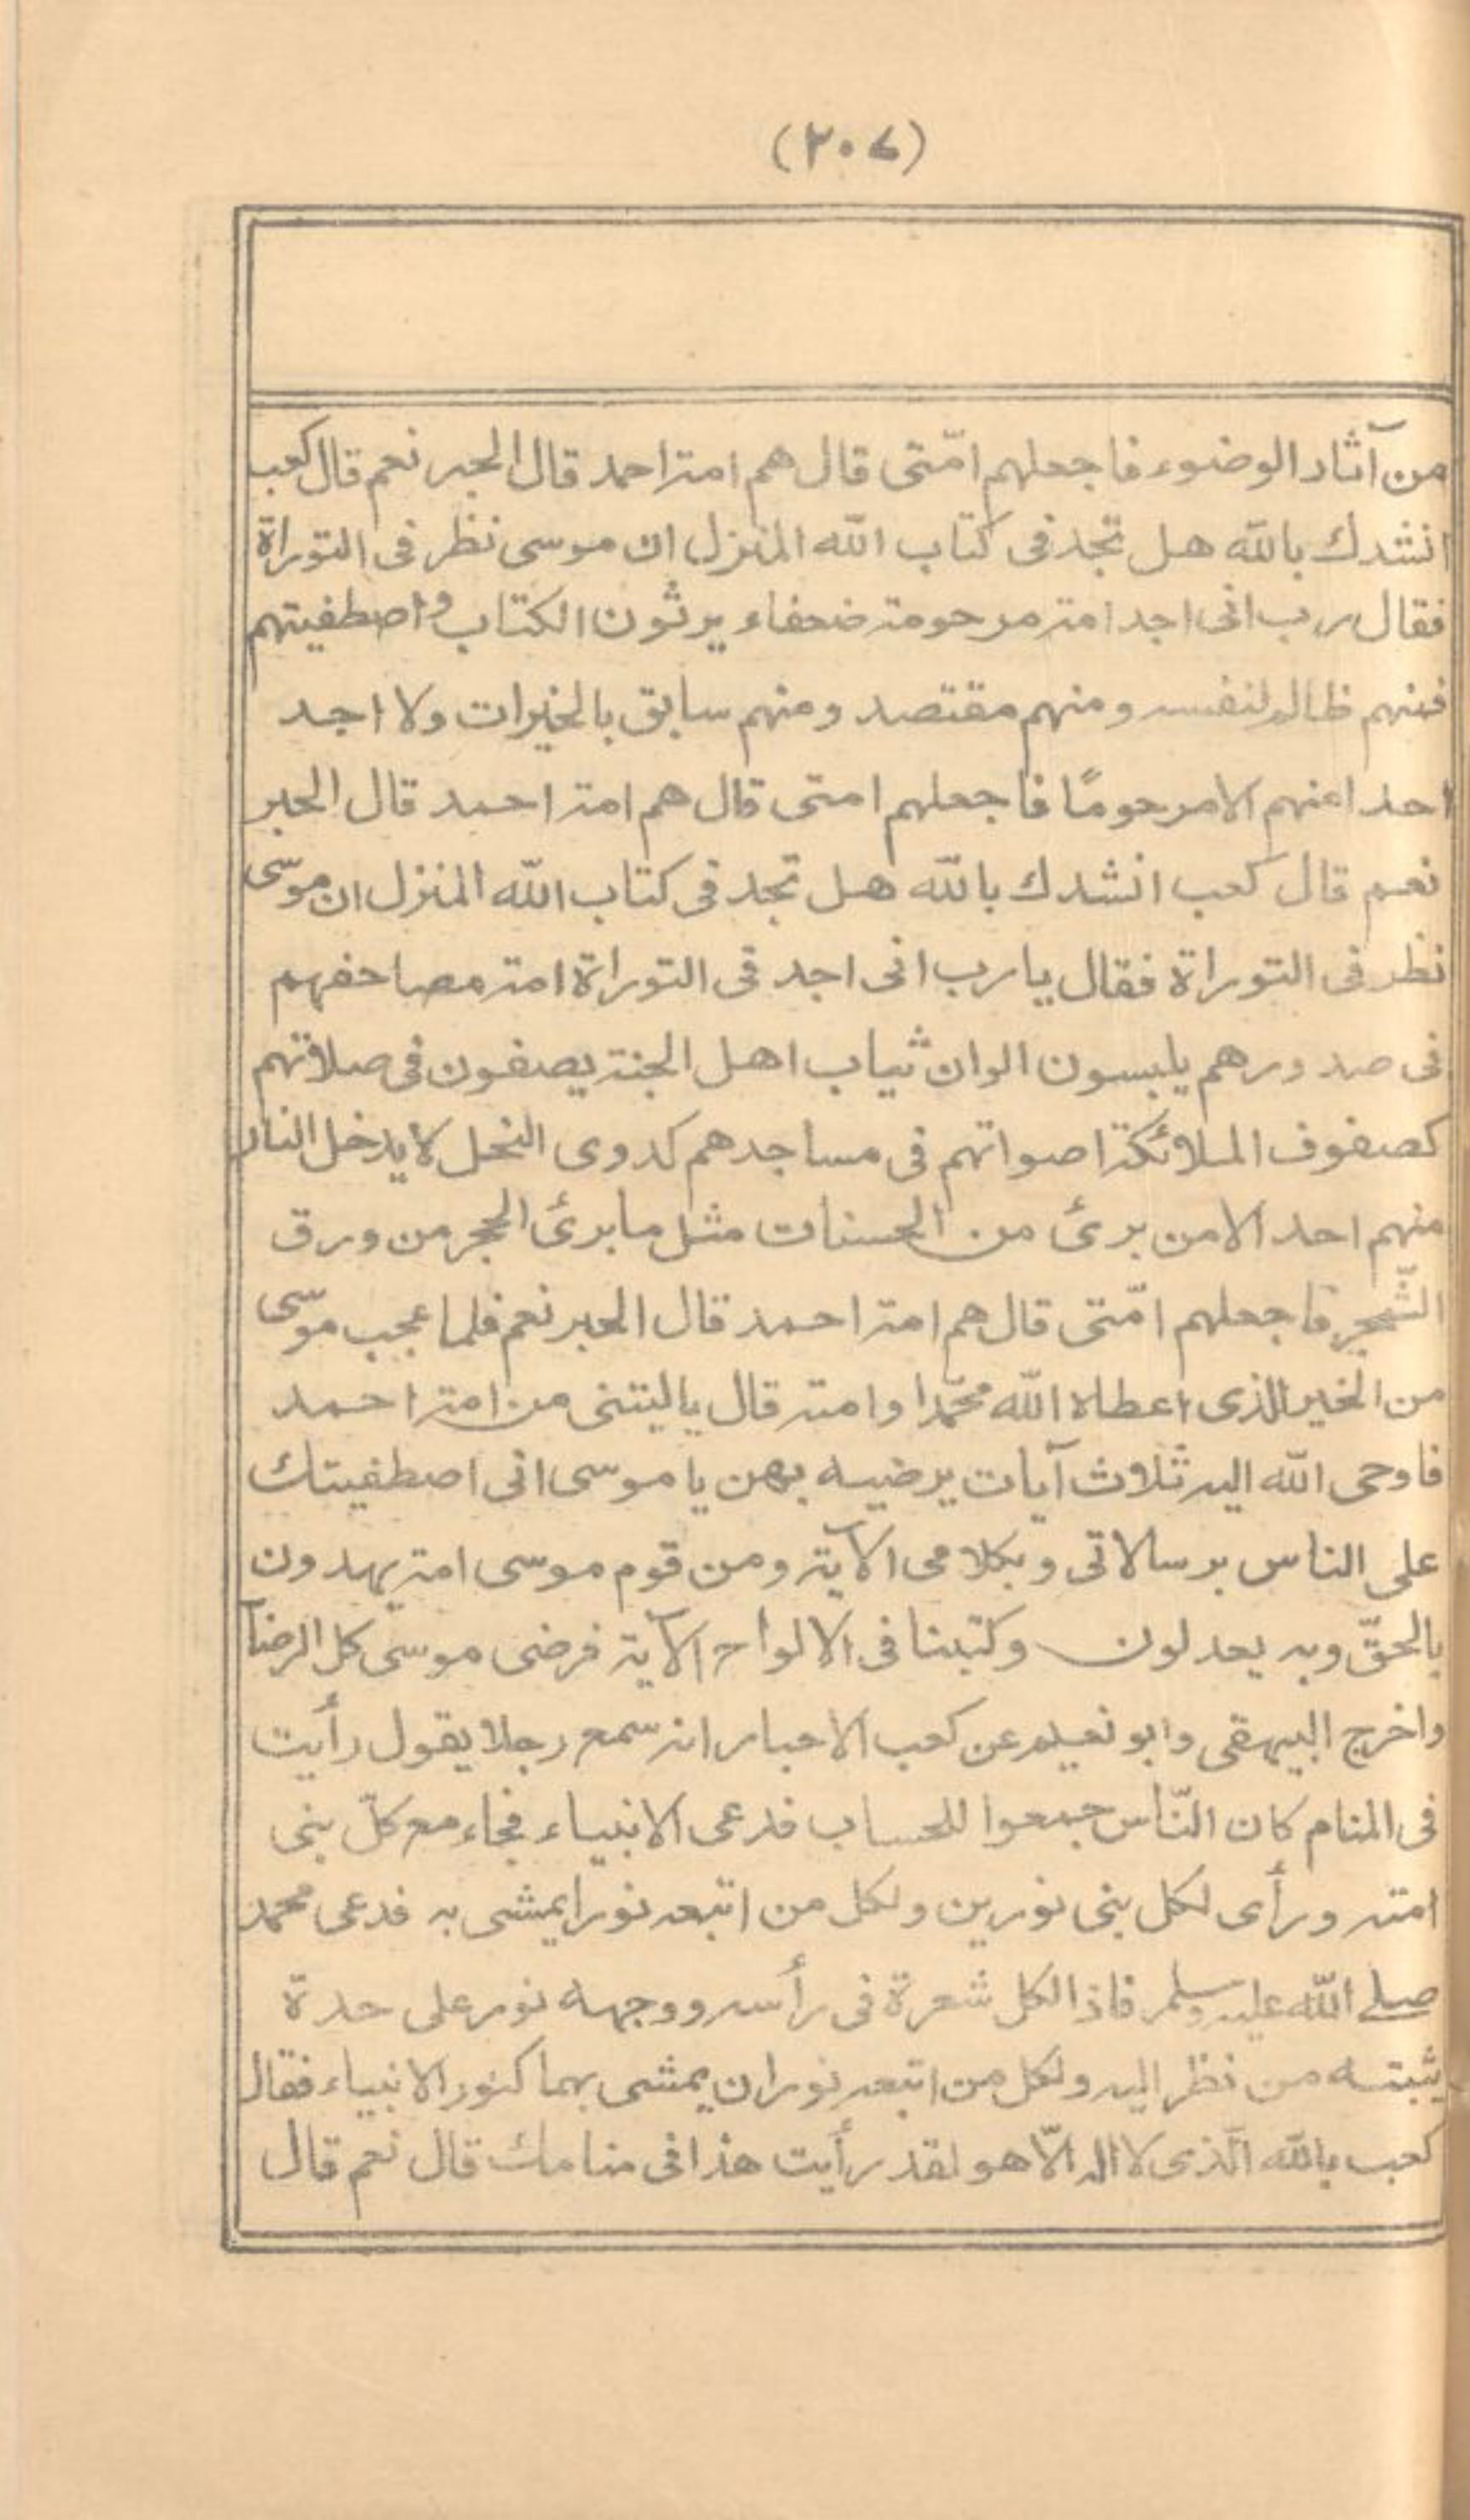 (٢٠٧)
من آثار الوضوء فاجعلهم امّتى قال هم امة احمد قال الحبر نعم قال كعب
انشدك بالله هل تجد فى كتاب الله المنزل ان موسى نظر فى التوراة
فقال رب انى اجد امة مرحومة ضعفاء يرثون الكتاب واصطفيتهم
فمنهم ظالم لنفسه ومنهم مقتصد ومنهم سابق بالخيرات ولا اجد
احدا منهم الا مرحومًا فاجعلهم امتى قال هم امة احمد قال الحبر
نعم قال كعب انشدك بالله هل تجد فى كتاب الله المنزل ان موسى
نظر فى التوراة فقال يا رب انى اجد فى التوراة امة مصاحفهم
فى صدورهم يلبسون الوان ثياب اهل الجنة يصفون فى صلاتهم
كصفوف الملائكة اصواتهم فى مساجدهم كدوى النحل لا يدخل النار
منهم احد الا من برئ من الحسنات مثل ما برئ الحجر من ورق
الشّجر فاجعلهم امّتى قال هم امة احمد قال الحبر نعم فلما عجب موسى
من الخير الذى اعطاه الله محمّدا وامته قال ياليتنى من امة احمد
فاوحى الله اليه ثلاث آيات يرضيه بهن يا موسى انى اصطفيتك
على الناس برسالاتى وبكلامى الآية ومن قوم موسى امة يهدون
بالحقّ وبه يعدلون وكتبنا فى الالواح الآية فرضى موسى كل الرضآ
واخرج البيهقى وابو نعيم عن كعب الاحبار انه سمع رجلا يقول رأيت
فى المنام كان النّاس جمعوا للحساب فدعى الانبياء فجاء مع كلّ نبى
امته ورأى لكل نبى نورين ولكل من اتبعه نورا يمشى به فدعى محمد
صلى الله عليه وسلم فاذا لكل شعرة فى رأسه ووجهه نور على حدة
يثبته من نظر اليه ولكل من اتبعه نوران يمشى بهما كنور الانبياء فقال
كعب بالله الّذى لا اله الّا هو لقد رأيت هذا فى منامك قال نعم قال